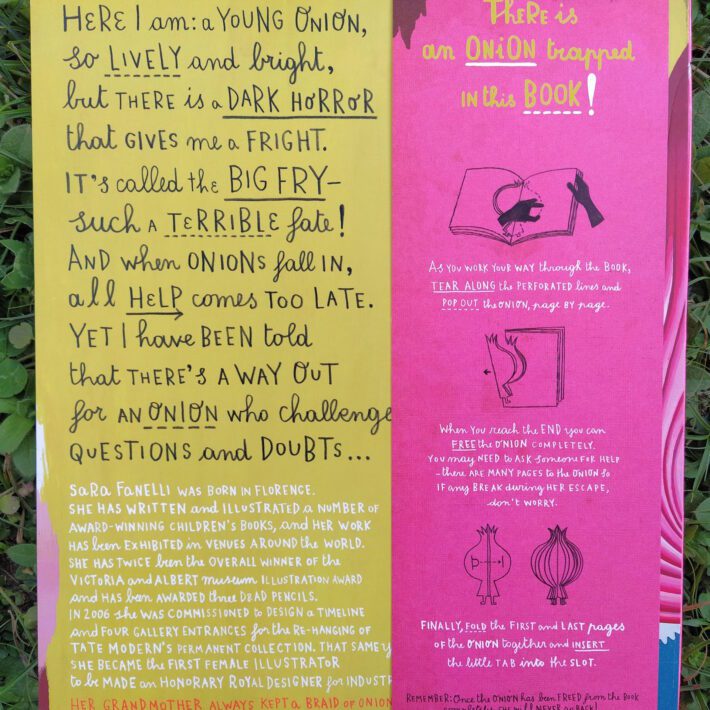 HERE I am: a YOUNG ONION,
so LIVELY and bright,
but THERE is a DARK HORROR
that GIVES me a FRIGHT.
IT's called the BIG FRY—
such A TERRIBLE fate!
AND when ONIONS fall IN,
all HELP comes TOO LATE.
YET I have BEEN told
that THERE'S A WAY OUT
for AN ONION who challenge
QUESTIONS and DOUBTS...
SARA FANELLI WAS BORN IN FLORENCE.
SHE HAS WRITTEN and ILLUSTRATED A NUMBER OF
AWARD-WINNING CHILDREN'S BOOKS, and HER WORK
HAS been EXHIBITED IN VENUES AROUND the WORLD.
SHE HAS TWICE been the OVERALL WINNER OF the
VICTORIA and ALBERT museum ILLUSTRATION AWARD
and HAS been AWARDED three D&AD PENCILS.
IN 2006 she WAS COMMISSIONED to DESIGN a TIMELINE
and FOUR GALLERY ENTRANCES for the RE-HANGING OF
TATE MODERN'S PERMANENT COLLECTION. THAT SAME
SHE BECAME the FIRST FEMALE ILLUSTRATOR
to be MADE an HONORARY ROYAL DESIGNER for
HER GRANDMOTHER ALWAYS KEPT a BRAID OF ONION
THERE is
an ONION trapped
IN this BOOK!
As YOU WORK YOUR WAY through the BOOK,
TEAR ALONG the PERFORATED lines and
POP OUT the ONION, page BY page.
WHEN YOU REACH the END you can
FREE the ONION COMPLETELY.
YOU may NEED to ASK someone FOR HELP
–there ARE MANY PAGES to the ONION so
IF any BREAK during HER ESCAPE,
don't WORRY.
FINALLY, FOLD the FIRST and LAST pages
OF the ONION together and INSERT
the little TAB into the SLOT.
REMEMBER: Once the ONION HAS been FREED from the BOOK